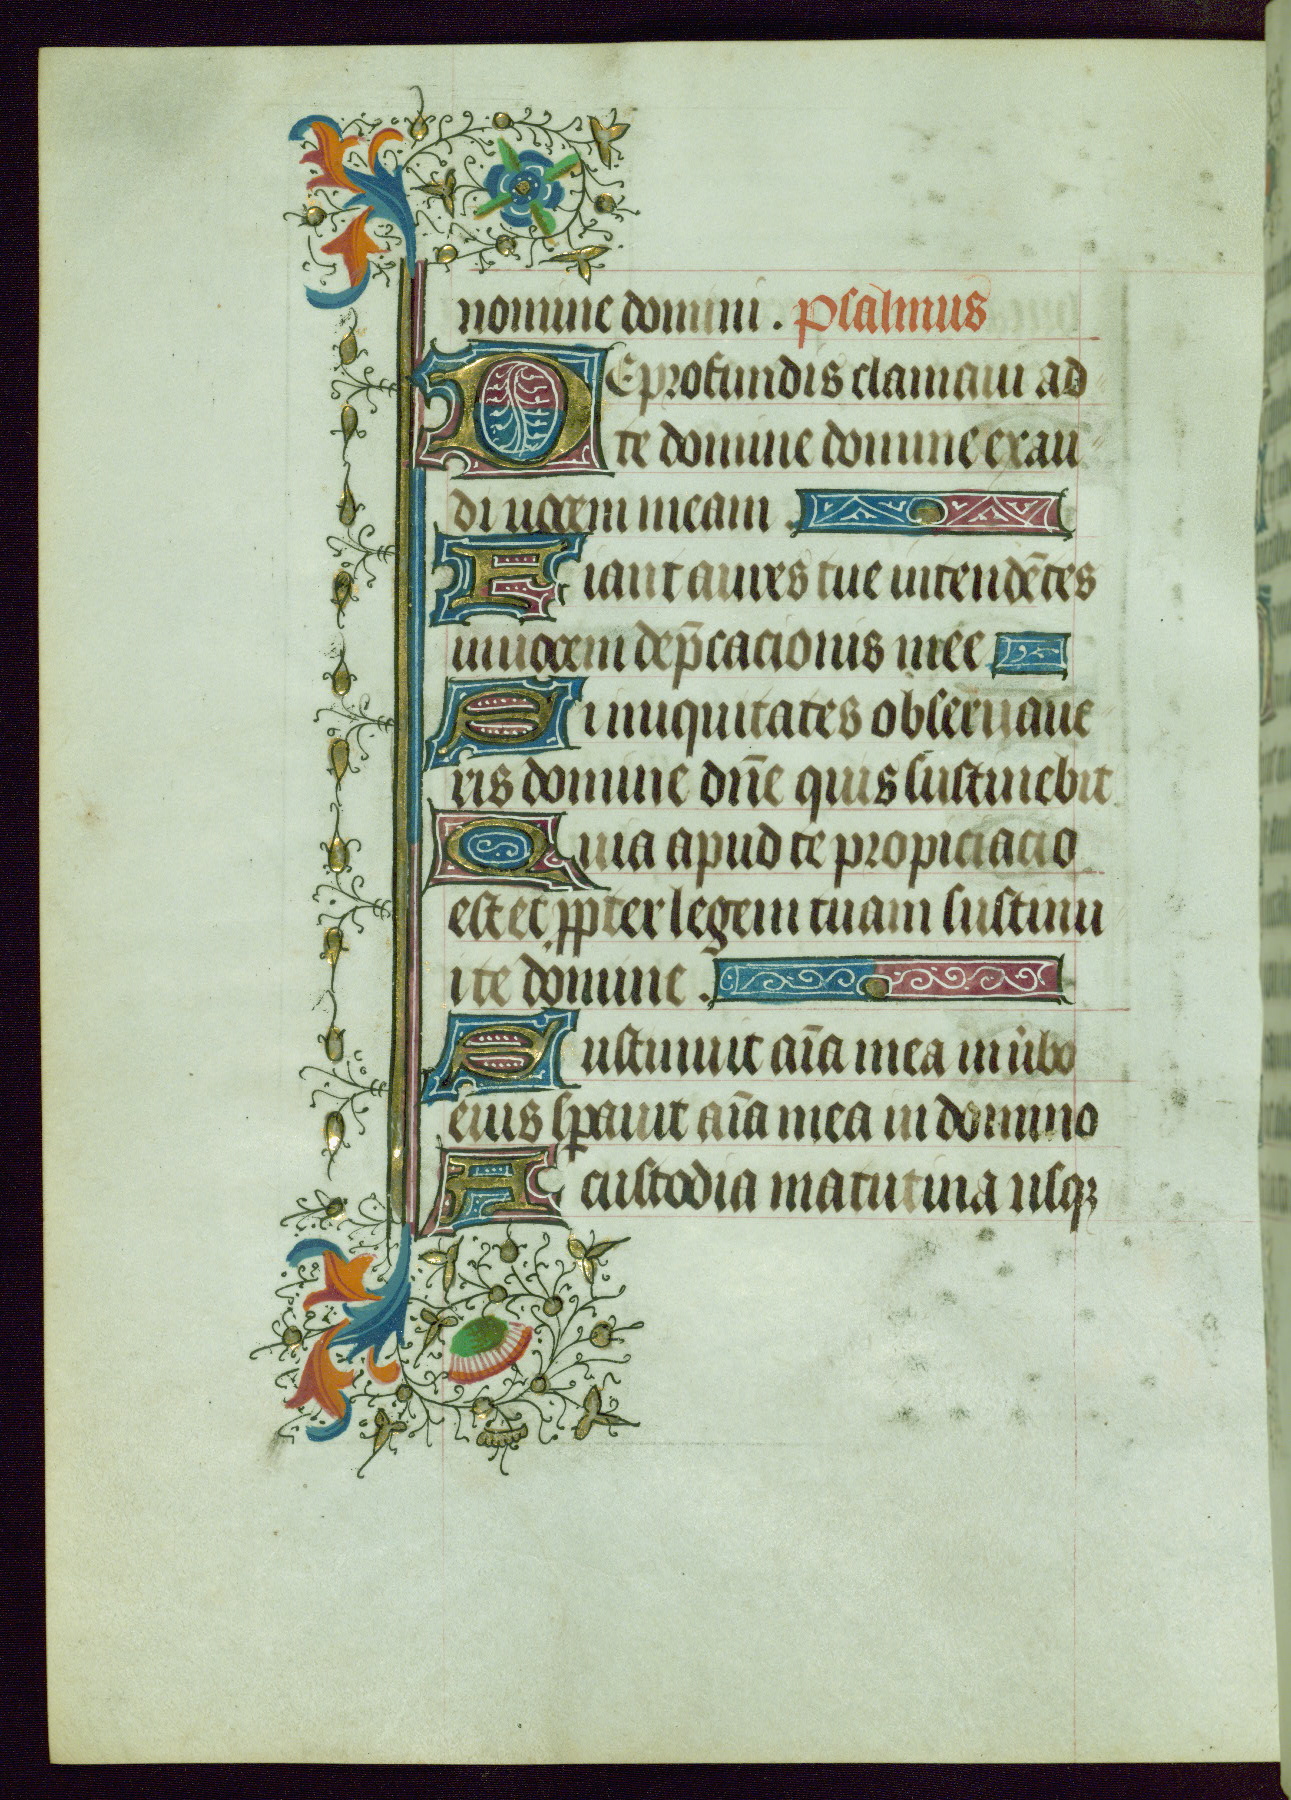 nomine domini. psalmus
De profundis clamaui ad
te domine domine exau
di uocem meam.
Fiant aures tue intendētes
in uocem dep̄cacionis mee
Si iniquitates obseruaue
ris domine dn̄e quis sustinebit
Quia apud te propiciacio
est et ꝓpter legem tuam sustinu
i te domine.
Sustinuit aīa mea in ūbo
eius sꝑauit aīa mea in domino
A custodia matutina usqꝫ